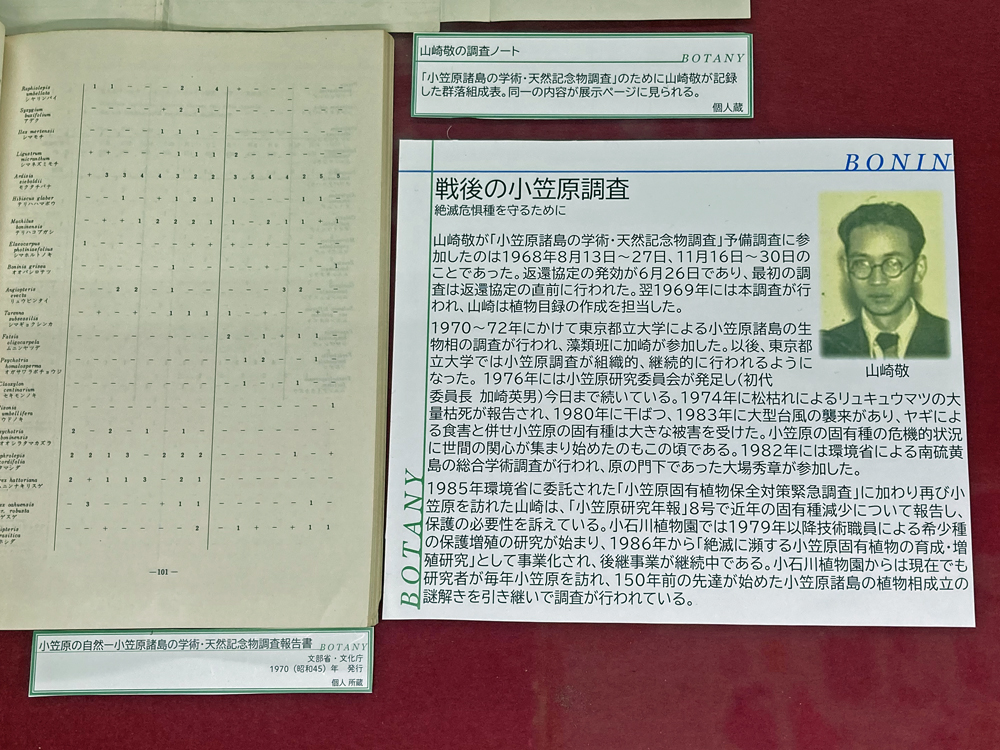 山崎敬の調査ノート
BOTANY
「小笠原諸島の学術・天然記念物調査」のために山崎敬が記録
した群落組成表。同一の内容が展示ページに見られる。
個人蔵
BONIN
戦後の小笠原調査
絶滅危惧種を守るために
山崎敬が「小笠原諸島の学術・天然記念物調査」予備調査に参
加したのは1968年8月13日〜27日、11月16日〜30日の
ことであった。返還協定の発効が6月26日であり、最初の調
査は返還協定の直前に行われた。翌1969年には本調査が行
われ、山崎は植物目録の作成を担当した。
1970〜72年にかけて東京都立大学による小笠原諸島の生
物相の調査が行われ、藻類班に加崎が参加した。以後、東京都
立大学では小笠原調査が組織的、継続的に行われるように
なった。1976年には小笠原研究委員会が発足し(初代
委員長 加崎英男)今日まで続いている。1974年に松枯れによるリュキュウマツの大
量枯死が報告され、1980年に干ばつ、1983年に大型台風の襲来があり、ヤギによ
る食害と併せ小笠原の固有種は大きな被害を受けた。小笠原の固有種の危機的状況
に世間の関心が集まり始めたのもこの頃である。1982年には環境省による南硫黄
島の総合学術調査が行われ、原の門下であった大場秀章が参加した。
1985年環境省に委託された「小笠原固有植物保全対策緊急調査」に加わり再び小笠
原を訪れた山崎は、「小笠原研究年報」8号で近年の固有種減少について報告し、
保護の必要性を訴えている。小石川植物園では1979年以降技術職員による希少種
の保護増殖の研究が始まり、1986年から「絶滅に瀕する小笠原固有植物の育成・増
殖研究」として事業化され、後継事業が継続中である。小石川植物園からは現在でも
研究者が毎年小笠原を訪れ、150年前の先達が始めた小笠原諸島の植物相成立の
謎解きを引き継いで調査が行われている。
山崎敬
BOTANY
Raphiolepis
umbellata
シャリンバイ
Syzygium
buxifolium
アデク
Ilex mertensii
シマモチ
Ligustrum
micranthum
シマネズミモチ
Ardisia
sieboldii
モクタチバナ
Hibiscus glaber
テリハハマボウ
Machilus
boninensis
テリハコブガシ
Elaeocarpus
photiniaefolius
シマホルトノキ
Boninia grisea
オオバシロテツ
Angiopteris
evecta
リュウビンタイ
Tarenna
subsessilis
シマギョクシンカ
Fatsia
oligocarpela
ムニンヤツデ
Psychotria
homalosperma
オガサワラボチョウジ
—101—
小笠原の自然ー小笠原諸島の学術・天然記念物調査報告書
BOTANY
文部省・文化庁
1970(昭和45)年 発行
個人所蔵